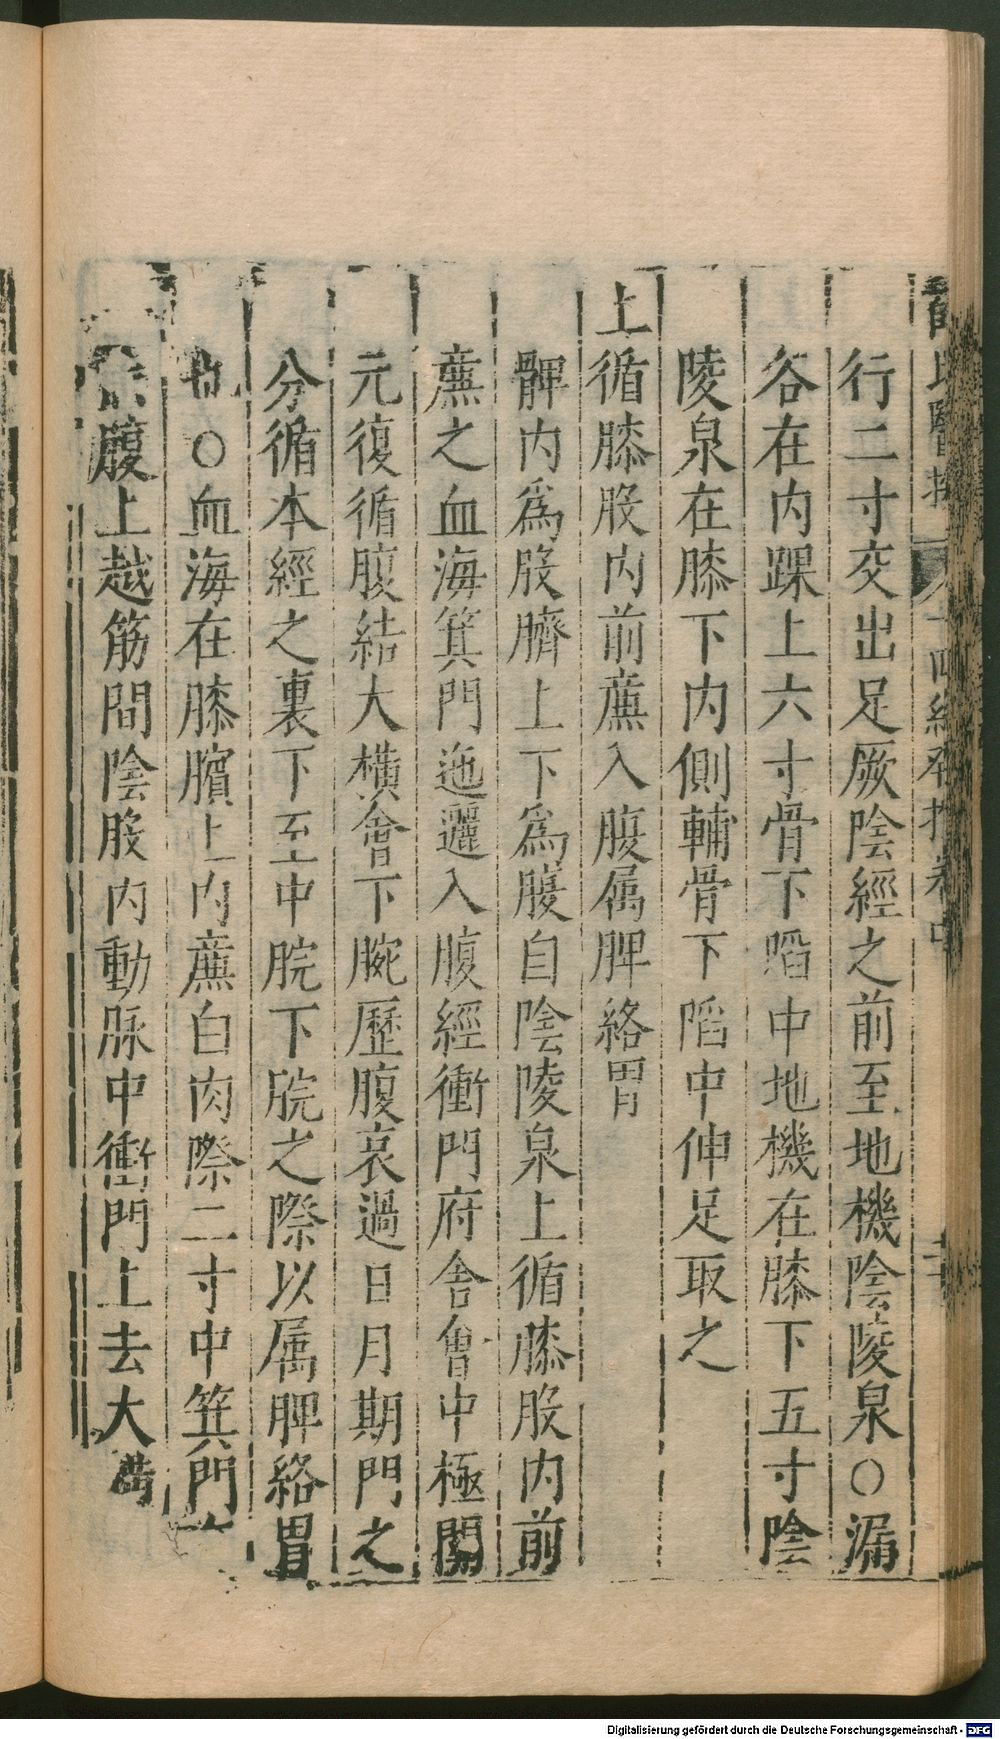 行二寸交出足厥陰經之前至地機陰陵泉○漏
谷在内踝上六寸骨下陷中地機在膝下五寸陰
陵泉在膝下内側輔骨下陷中伸足取之
上循膝股内前廉入腹属脾絡胃
髀内爲股臍上下爲腹自陰陵泉上循膝股内前
廉之血海箕門迤邐入腹經衝門府舍會中極關
元復循腹結大橫會下脘歷腹哀過日月期門之
分循本經之裏下至中脘下脘之際以属脾絡胃
○血海在膝臏上内廉白肉際二寸中箕門
腹上越筋間陰股内動脉中衝門上去大
Digitalisierung gefördert durch die Deutsche Forschungsgemeinschaft - DFG